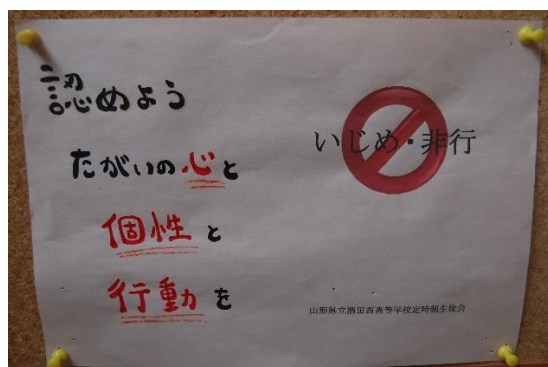 認めよう
たがいの心と
個性と
行動を
いじめ・非行
山形県立酒田西高等学校定時制生徒会